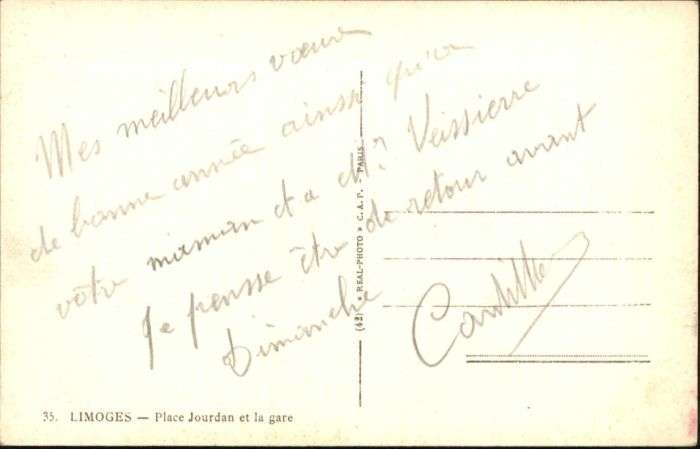 Mes meilleurs vœux
de bonne année ainsi qu'a
votre maman et a Mr Veissierre
Je pensse être de retour avant
Dimanche
35. LIMOGES — Place Jourdan et la gare
(42) « REAL-PHOTO » C. A. P. - PARIS